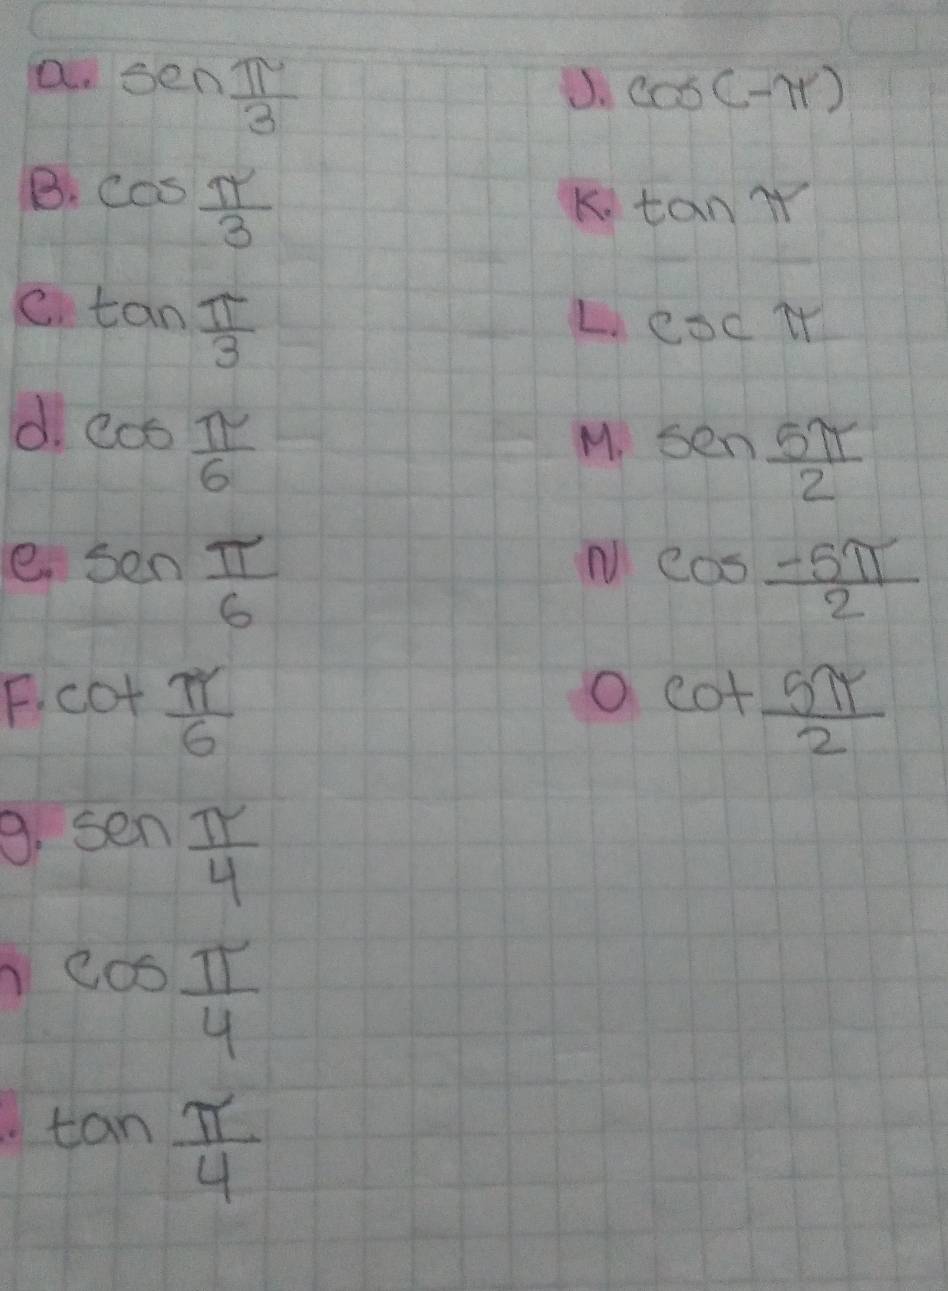 a. sen π/3
B. cos π/3
C. tan π/3
d. cos π/6
e. sen π/6
F. cot π/6
g. sen π/4
h cos π/4
. tan π/4
J. cos(-π)
K. tan π
L. csc π
M. sen 5π/2
N cos -5π/2
O cot 5π/2